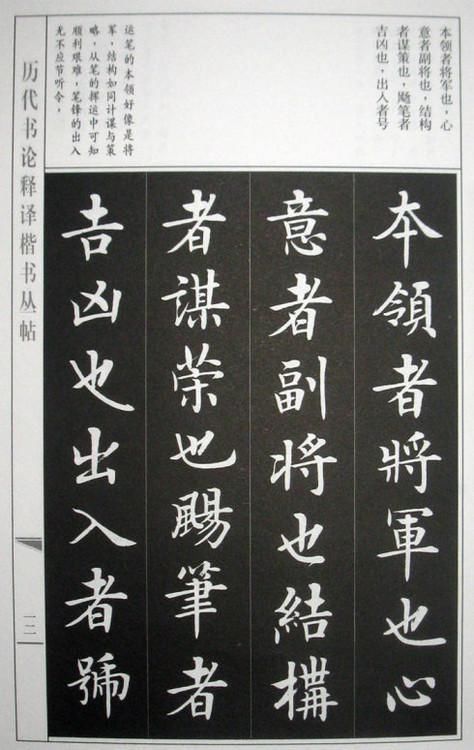 本领者将军也，心
意者副将也，结构
者谋策也，飏笔者
吉凶也，出入者号
运笔的本领好像是将
军，结构如同计谋与策
略，从笔的挥运中可知
顺利艰难，笔锋的出入
无不应节听令。
本領者將軍也心
意者副将也結構
者謀荣也颺筆者
吉凶也出入者號
历代书论释译楷书丛帖
一二